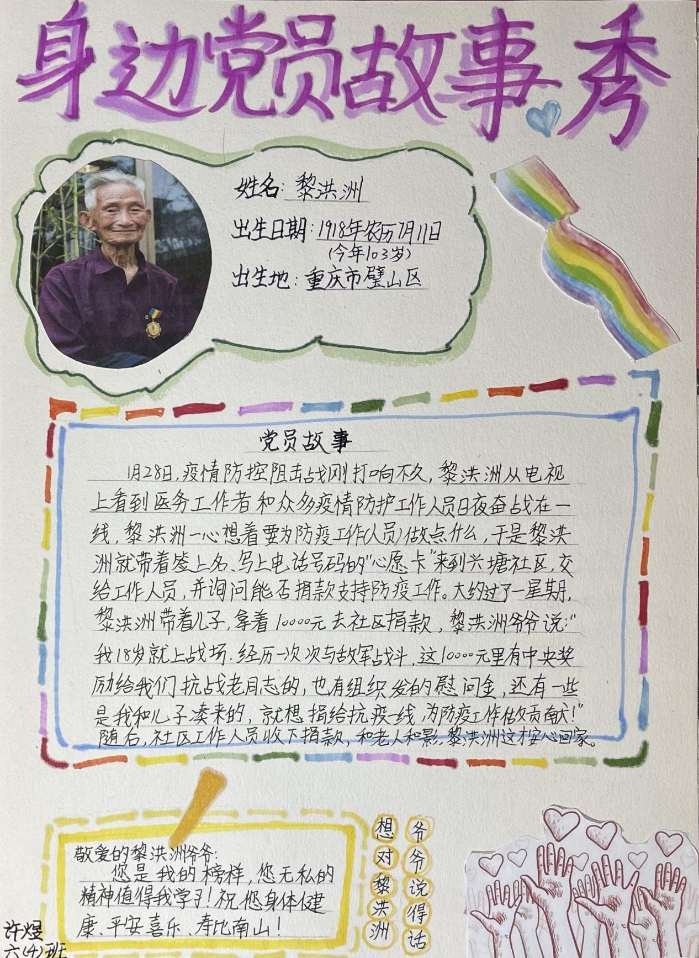 身边党员故事秀
姓名：黎洪洲
出生日期：1918年农历7月11日
（今年103岁）
出生地：重庆市璧山区
党员故事
1月28日，疫情防控阻击战刚打响不久，黎洪洲从电视
上看到医务工作者和众多疫情防护工作人员日夜奋战在一
线，黎洪洲一心想着要为防疫工作(人员)做点什么，于是黎洪
洲就带着签上名、写上电话号码的“心愿卡”来到兴塘社区，交
给工作人员，并询问能否捐款支持防疫工作。大约过了一星期，
黎洪洲带着儿子，拿着10000元去社区捐款，黎洪洲爷爷说：“
我18岁就上战场，经历一次次与敌军战斗，这10000元里有中央奖
励给我们抗战老同志的，也有组织发的慰问金，还有一些
是我和儿子凑来的，就想捐给抗疫一线，为防疫工作做贡献！”
随后，社区工作人员收下捐款，和老人和影，黎洪洲这才安心回家。
敬爱的黎洪洲爷爷：
您是我的榜样，您无私的
精神值得我学习！祝您身体健
康、平安喜乐、寿比南山！
想对黎洪洲
爷爷说得话
许煜
六(4)班